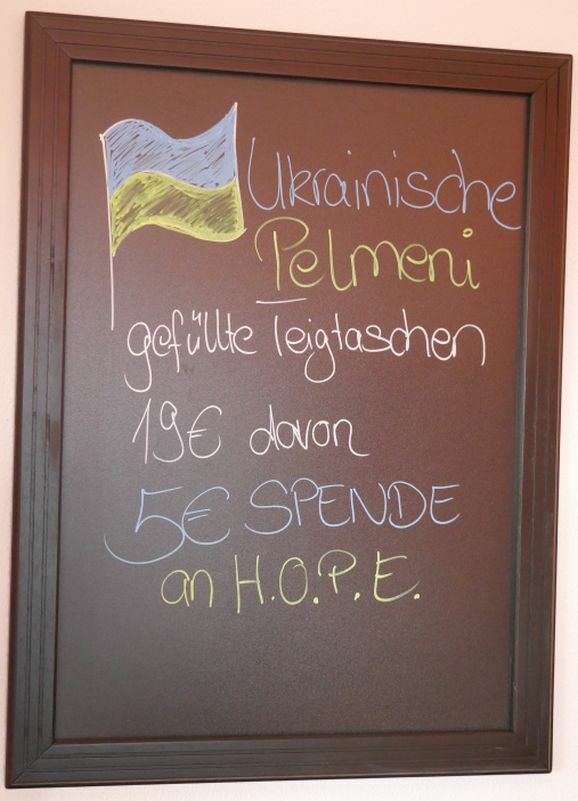 Ukrainische
Pelmeni
gefüllte Teigtaschen
19€ davon
5€ SPENDE
an H.O.P.E.